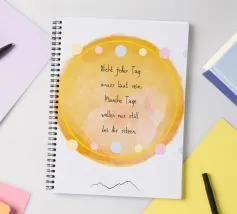 Nicht jeder Tag
muss laut sein.
Manche Tage
wollen nur still
bei dir sitzen.